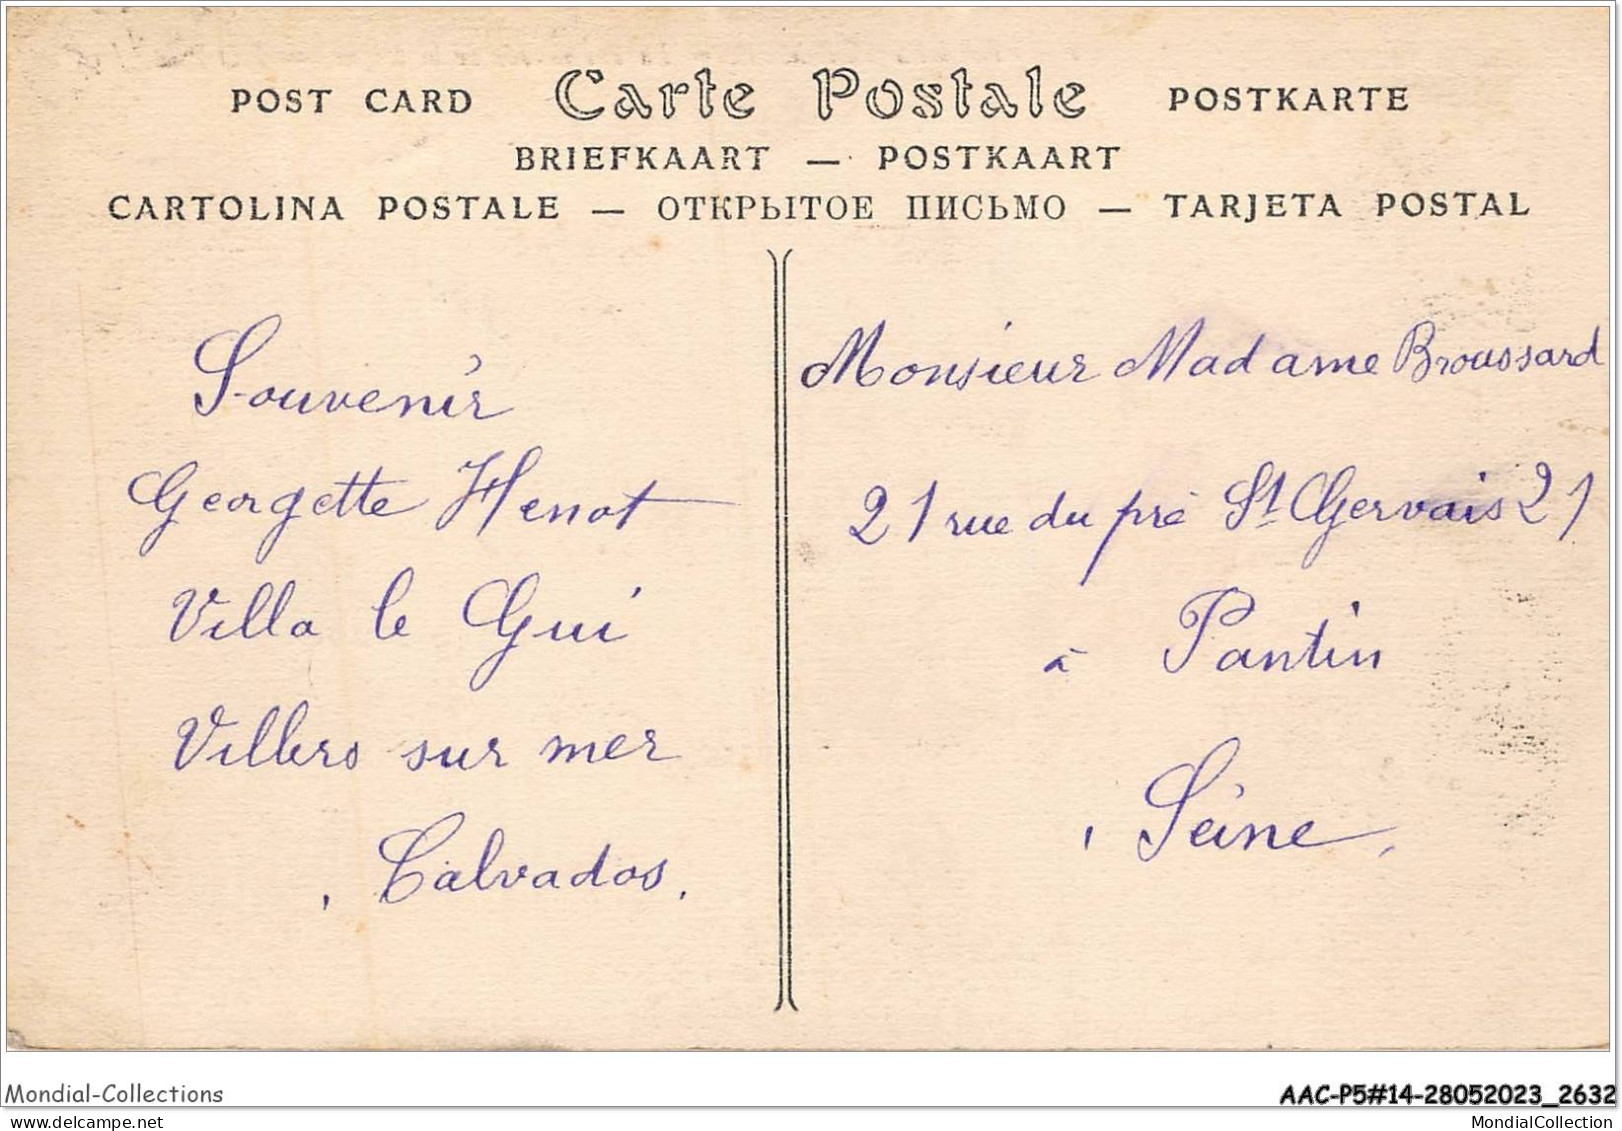 POST CARD Carte Postale POSTKARTE
BRIEFKAART — POSTKAART
CARTOLINA POSTALE — ОТКРЫТОЕ ПИСЬМО — TARJETA POSTAL
Souvenir
Georgette Henot
Villa le Gui
Villers sur mer
Calvados.
Monsieur Madame Broussard
21 rue du pré St Gervais 21
à Pantin
Seine
Mondial-Collections
AAC-P5#14-28052023_2632
delcampe.net
MondialCollection